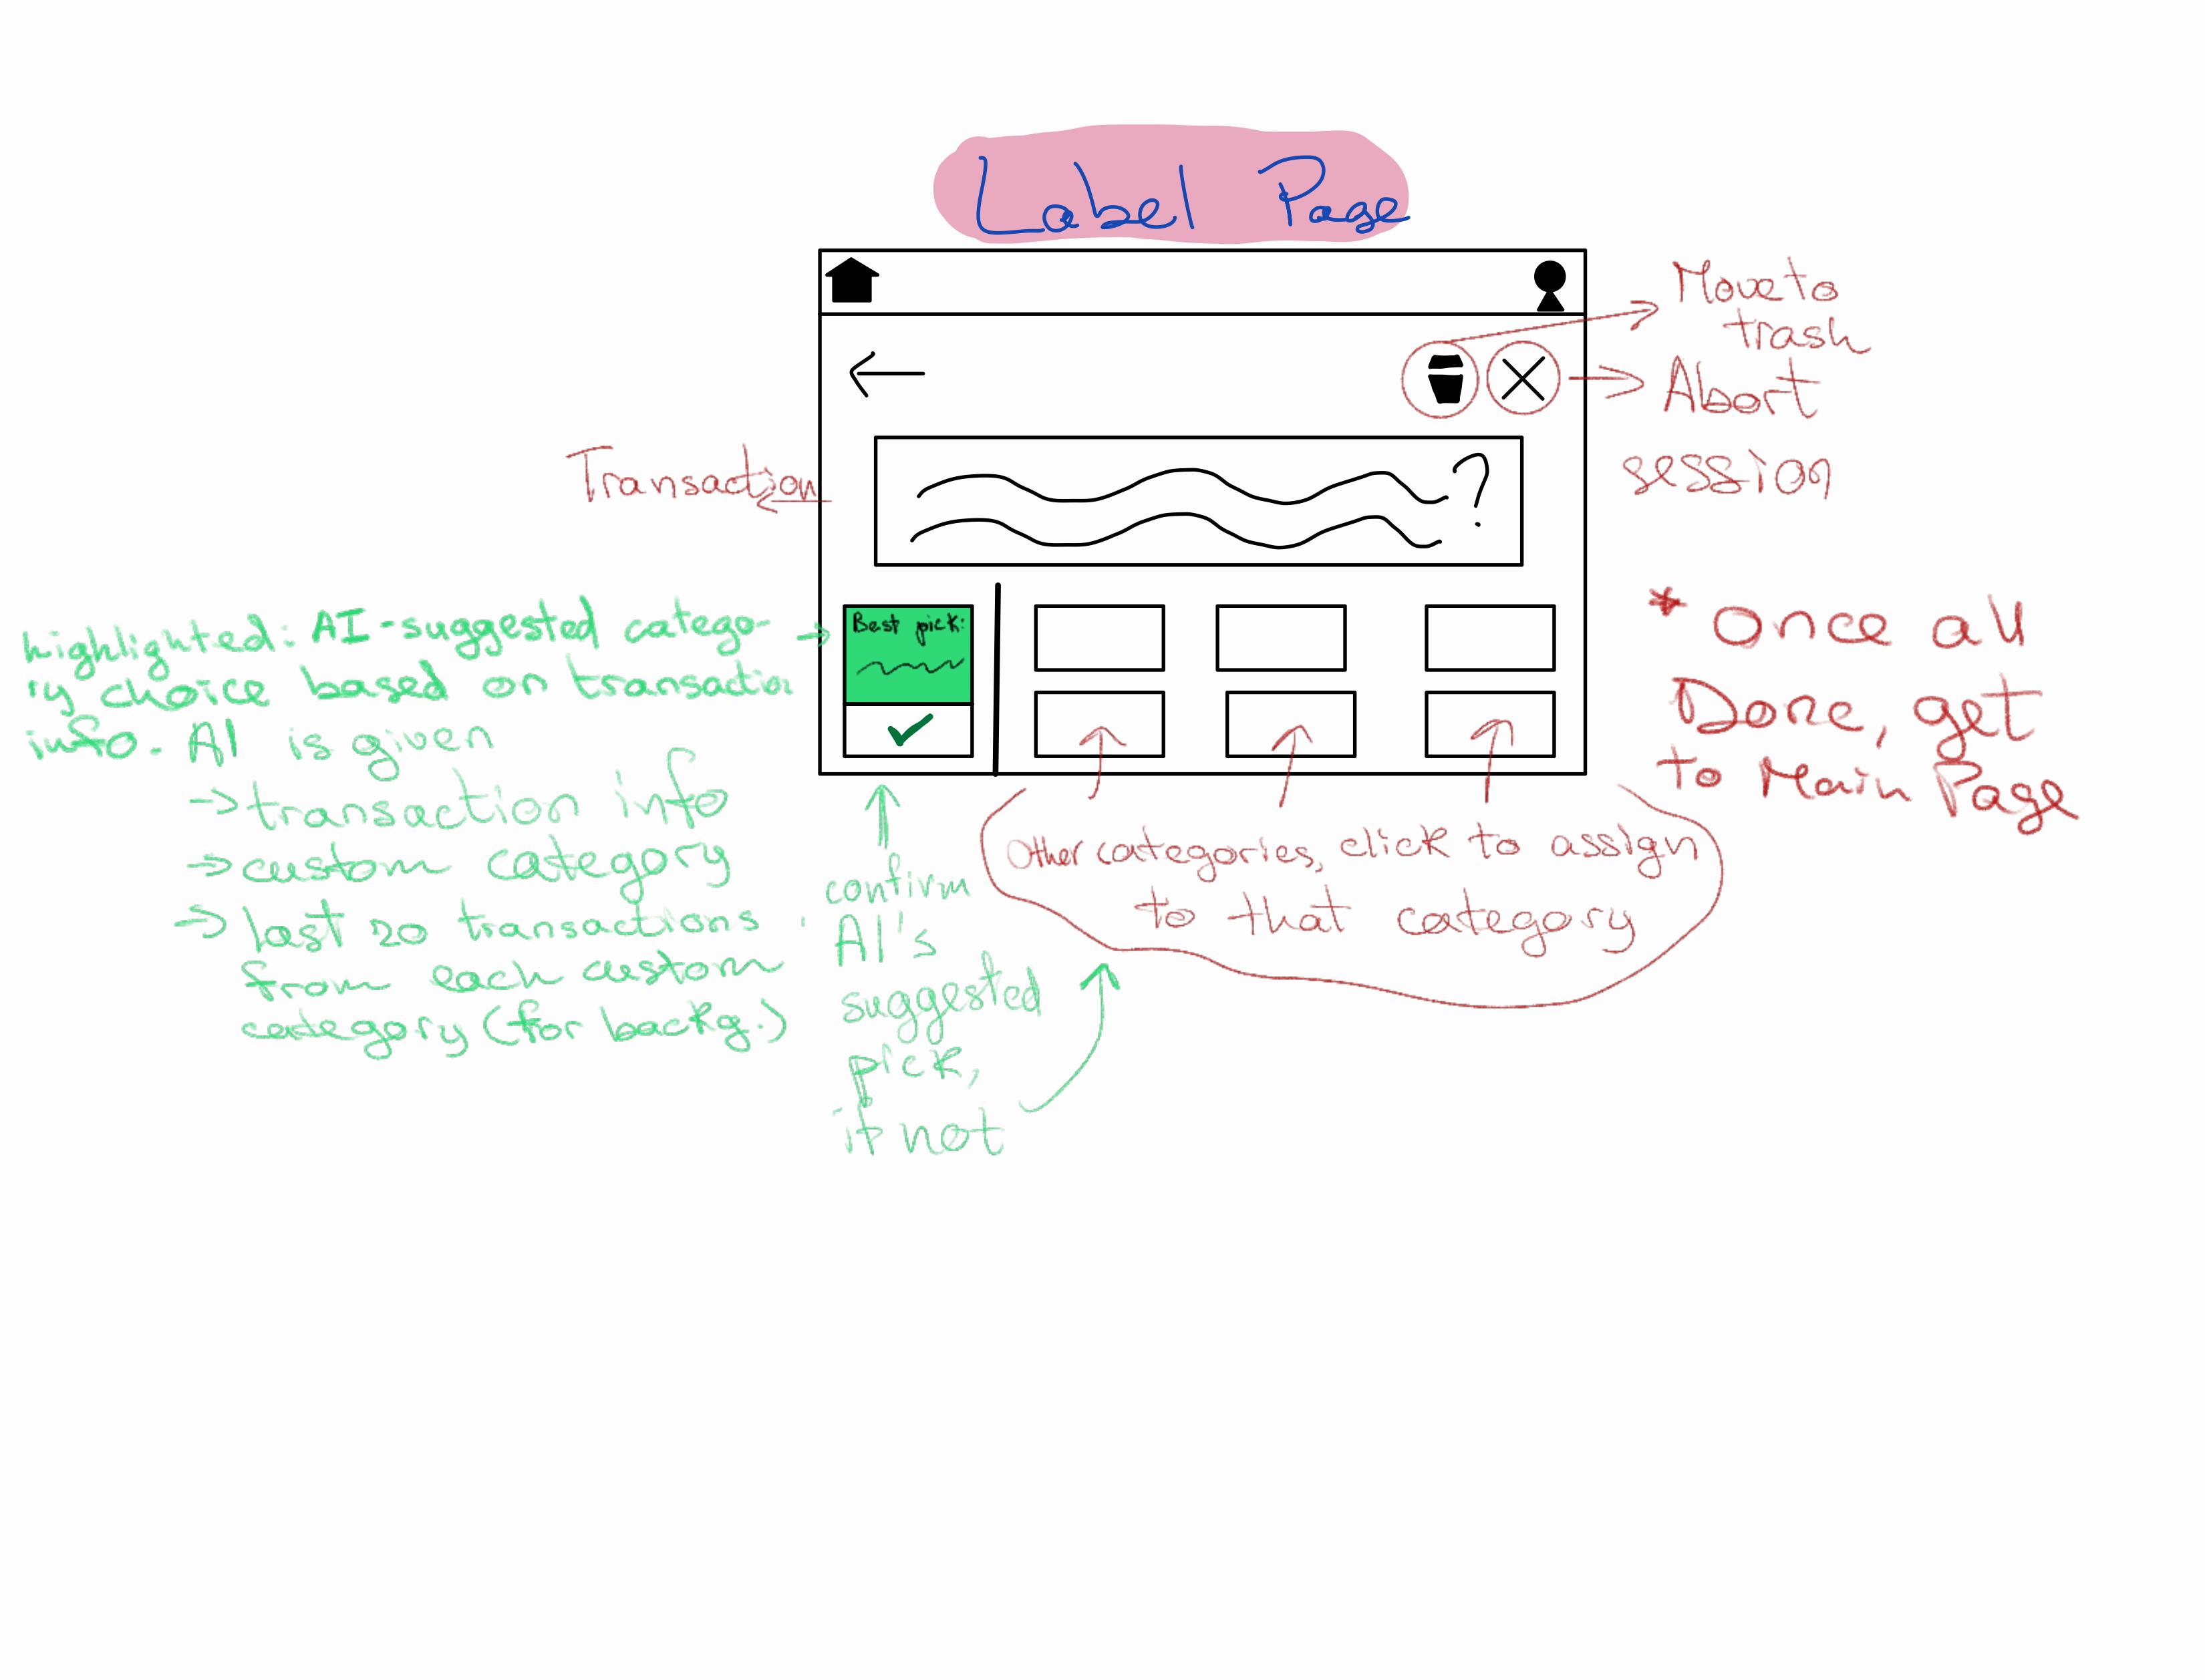 Label Page
Move to
trash
Abort
session
Transaction
?
Best pick:
highlighted: AI-suggested catego-
ry choice based on transaction
info. AI is given
→ transaction info
→ custom category
→ last 20 transactions
from each custom
category (for backg.)
confirm
AI's
suggested
pick,
if not
Other categories, click to assign
to that category
* Once all
Done, get
to Main Page